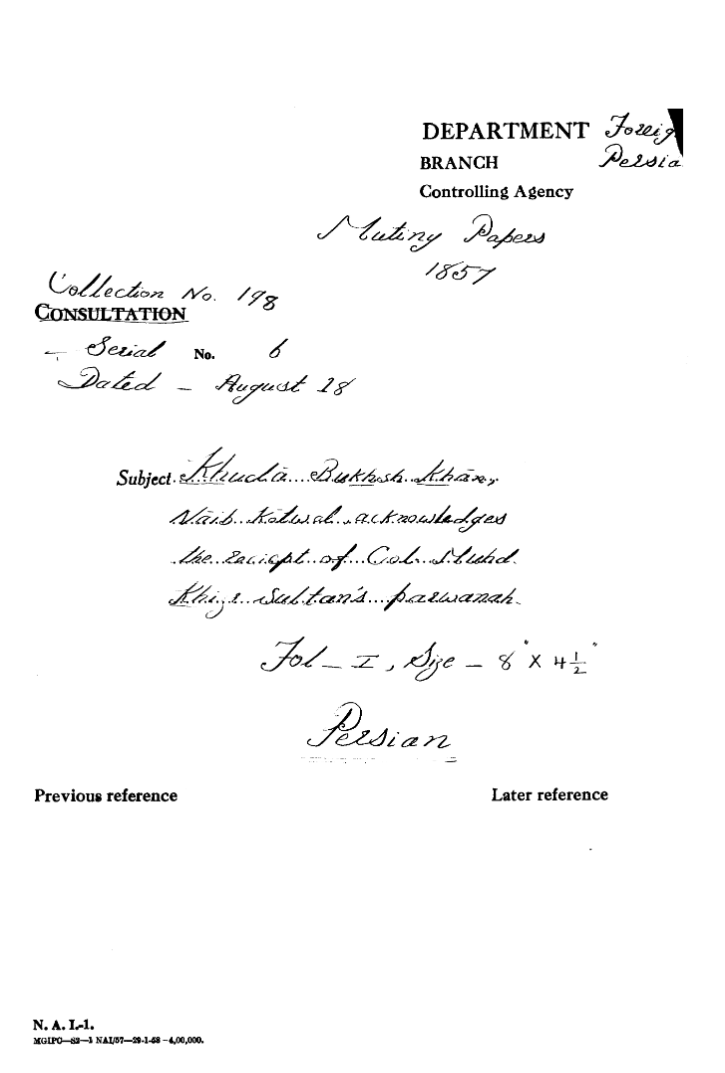 DEPARTMENT Foreig
BRANCH Persia
Controlling Agency
Mutiny Papers
1857
Collection No. 198
CONSULTATION
- Serial No. 6
Dated - August 18
Subject Khudā Bukhsh Khān,
Nāib Kotwal acknowledges
the reciept of Col. Muhd.
Khizr Sultan's parwanah.
Fol - I, Size - 8" X 4½"
Persian
Previous reference Later reference
N. A. I.-1.
MGIPC—S2—1 NAI/57—29-1-58—4,00,000.